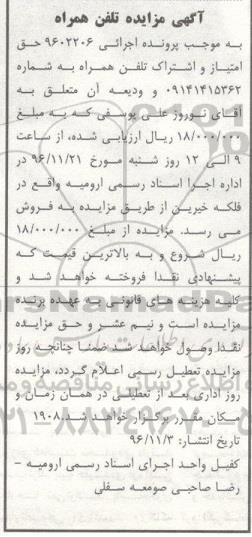 آگهی مزایده تلفن همراه
به موجب پرونده اجرائی ۹۶۰۲۲۰۶ حق
امتیاز و اشتراک تلفن همراه به شماره
۰۹۱۴۱۴۱۵۳۶۲ و ودیعه آن متعلق به
آقای نوروز علی یوسفی که به مبلغ
۱۸/۰۰۰/۰۰۰ ریال ارزیابی شده، از ساعت
۹ الی ۱۲ روز شنبه مورخ ۹۶/۱۱/۲۱ در
اداره اجرا اسناد رسمی ارومیه واقع در
فلکه خیرین از طریق مزایده به فروش
می رسد. مزایده از مبلغ ۱۸/۰۰۰/۰۰۰
ریال شروع و به بالاترین قیمت که
پیشنهادی نقدا فروخته خواهد شد و
کلیه هزینه های قانونی به عهده برنده
مزایده است و نیم عشر و حق مزایده
نقدا وصول خواهد شد ضمنا چنانچه روز
مزایده تعطیل رسمی اعلام گردد، مزایده
روز اداری بعد از تعطیلی در همان زمان و
مکان مقرر برگزار خواهد شد.۱۹۰۸
تاریخ انتشار: ۹۶/۱۱/۳
کفیل واحد اجرای اسناد رسمی ارومیه -
رضا صاحبی صومعه سفلی